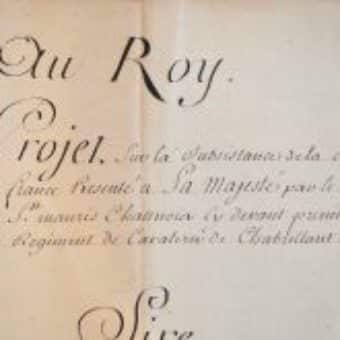 Au Roy.
Projet. Sur la Subsistance de la
france Presenté a Sa Majesté par le
Sr. mauris Chaunoir cy devant premi
Regiment de Cavalerie de Chabrillant
Sire